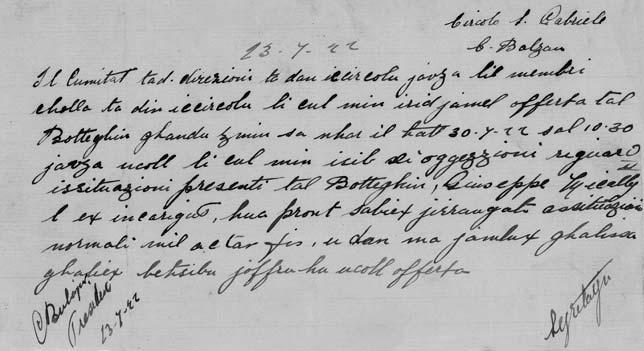 Circolo S. Gabriele
C. Balzan
23-7-22
Il Cumitat tad-direzioni ta dan iccircolu javza lil membri
cholla ta din iccircolu li cul min irid jamel offerta tal
Botteghin ghandu zmin sa nhar il hatt 30-7-22 sal 10.30
javza ucoll li cul min isib xi oggezzioni riguard
issituazioni presenti tal Botteghin, Giuseppe
l ex incarigat, hua pront sabiex jirrangata assituazioni
normali mil actar fis, u dan ma jamlux ghalissa
ghaliex behsibu joffru hu ucoll offerta
23-7-22